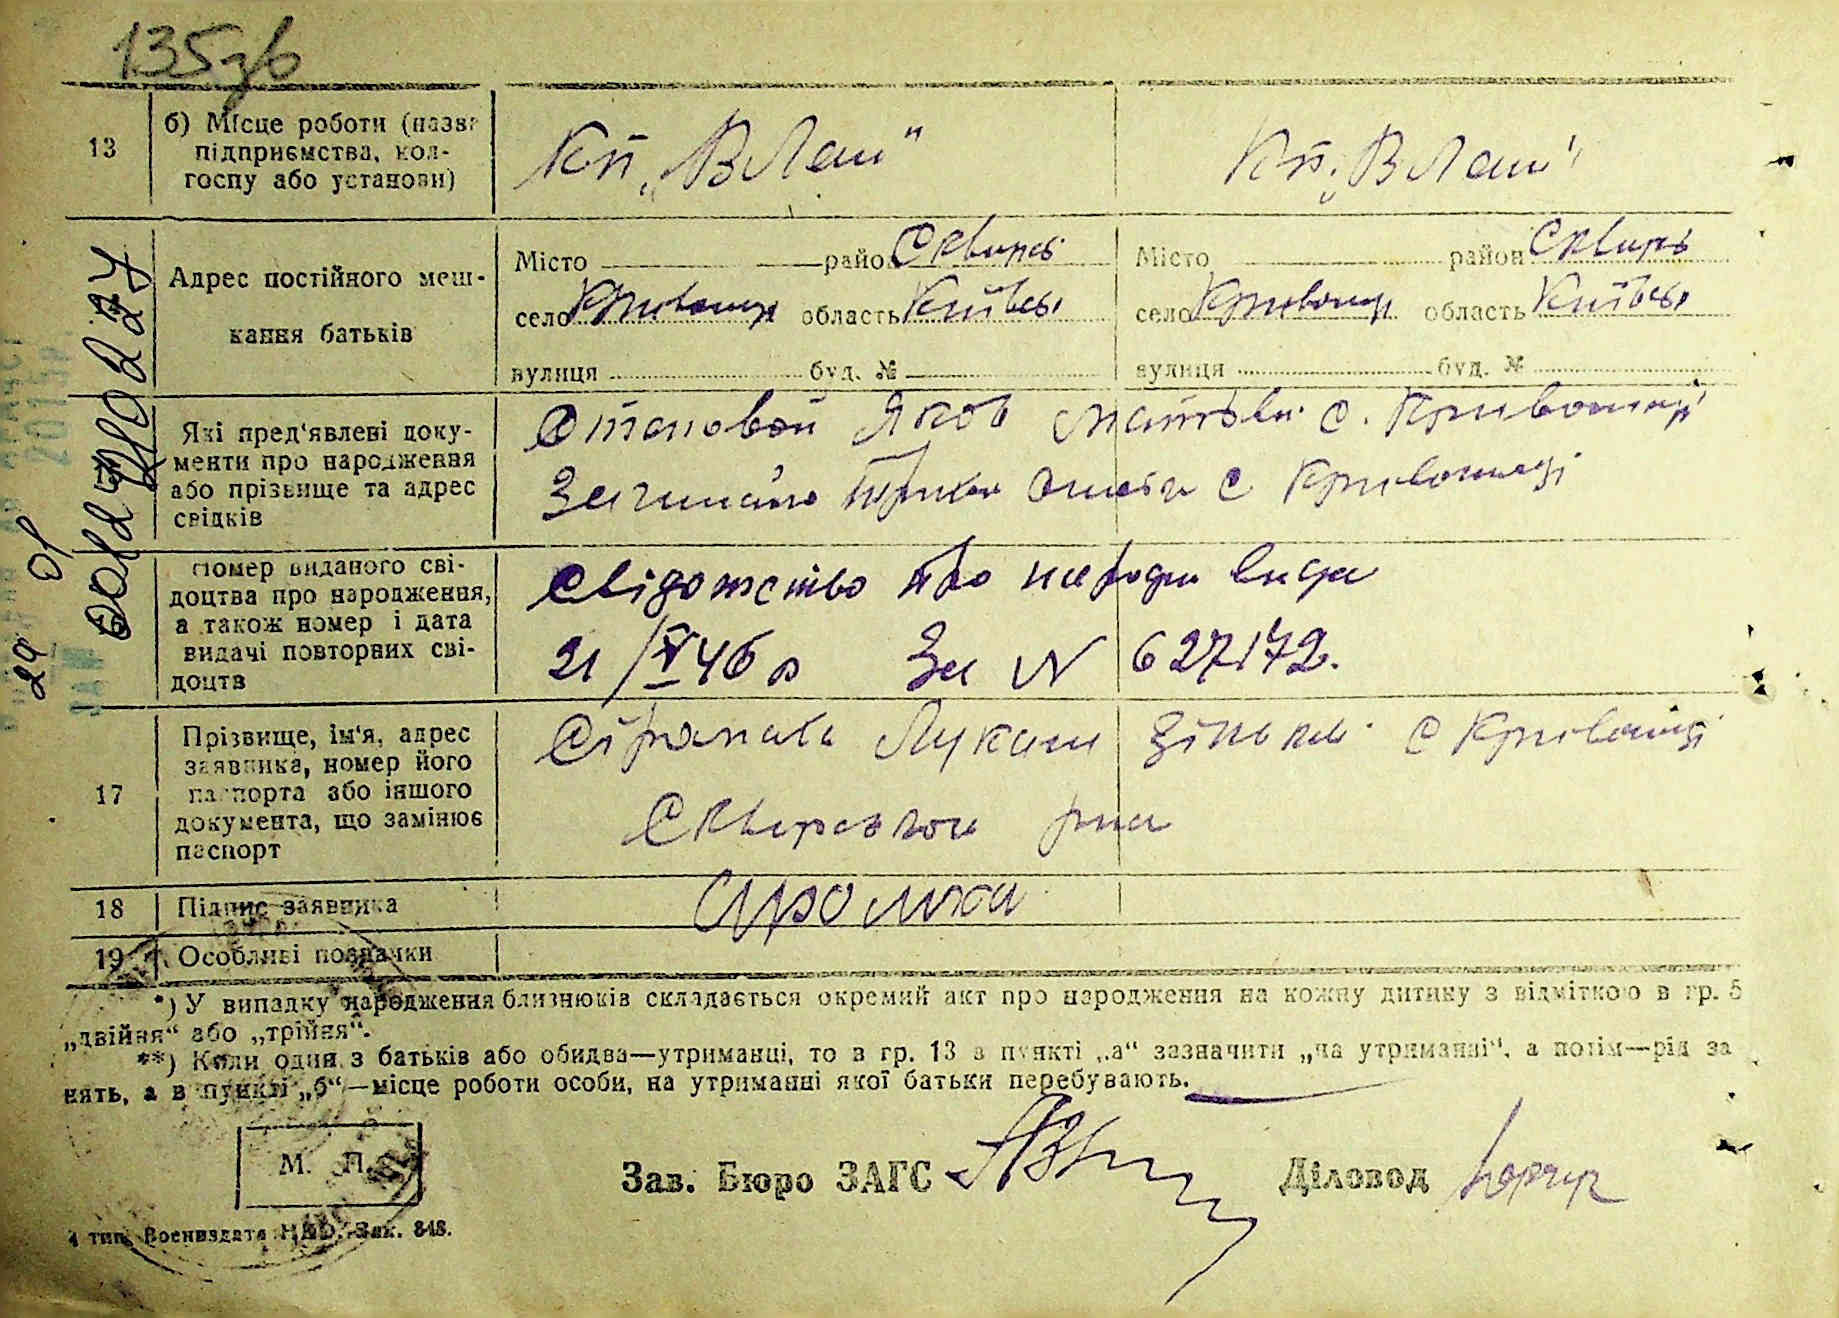 135зв
13
б) Місце роботи (назва
підприємства, кол-
госпу або установи)
Кп „В Лен"
Кп „В Лен"
Адрес постійного меш-
кання батьків
Місто район Сквирсь
село Кривошиї область Київсь
вулиця буд. №
Місто район Сквирь
село Кривошиї область Київсь
вулиця буд. №
Які пред'явлені доку-
менти про народження
або прізвище та адрес
свідків
Яков с. Кривошиї
с Кривошиї
Номер виданого сві-
доцтва про народження,
а також номер і дата
видачі повторних сві-
доцтв
Свідоцтво про народж видан
21/V 46 р За N 627172.
17
Прізвище, ім'я, адрес
заявника, номер його
паспорта або іншого
документа, що замінює
паспорт
Лукаш с Кривошиї
Сквирського рна
18
Підпис заявника
19
Особливі позначки
*) У випадку народження близнюків складається окремий акт про народження на кожну дитину з відміткою в гр. 5
„двійня" або „трійня".
**) Коли один з батьків або обидва—утриманці, то в гр. 13 в пункті „а" зазначити „на утриманні", а потім—рід за
нять, а в пункті „б"—місце роботи особи, на утриманні якої батьки перебувають.
М. П.
Зав. Бюро ЗАГС
Діловод
4 тип. Воениздата НКО. Зак. 848.